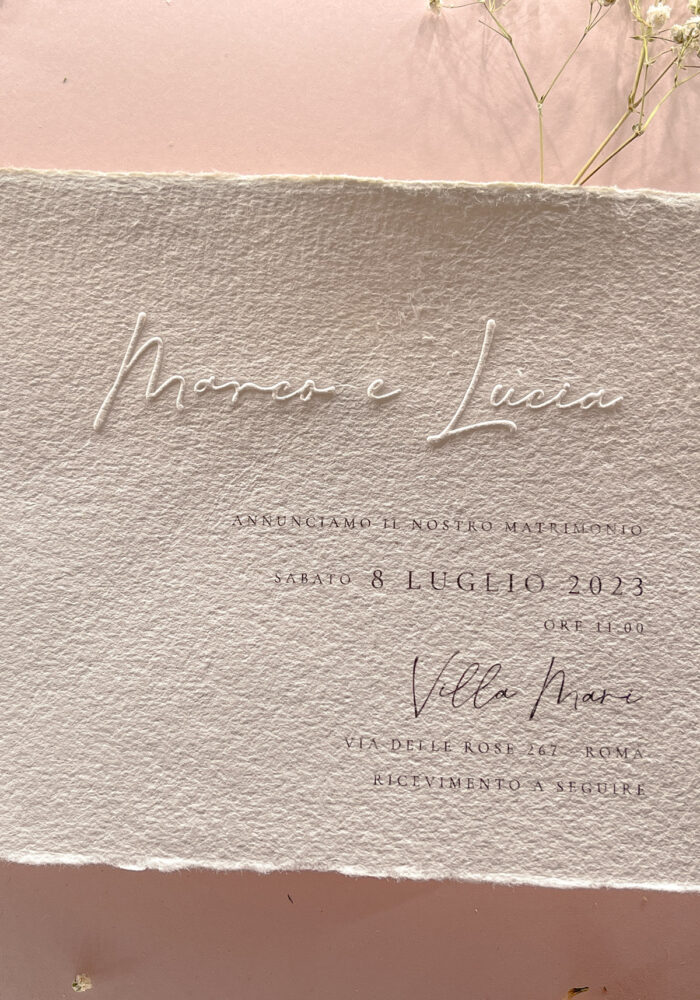 Marco e Lucia
ANNUNCIAMO IL NOSTRO MATRIMONIO
SABATO 8 LUGLIO 2023
ORE 11.00
Villa Mari
VIA DELLE ROSE 267 - ROMA
RICEVIMENTO A SEGUIRE